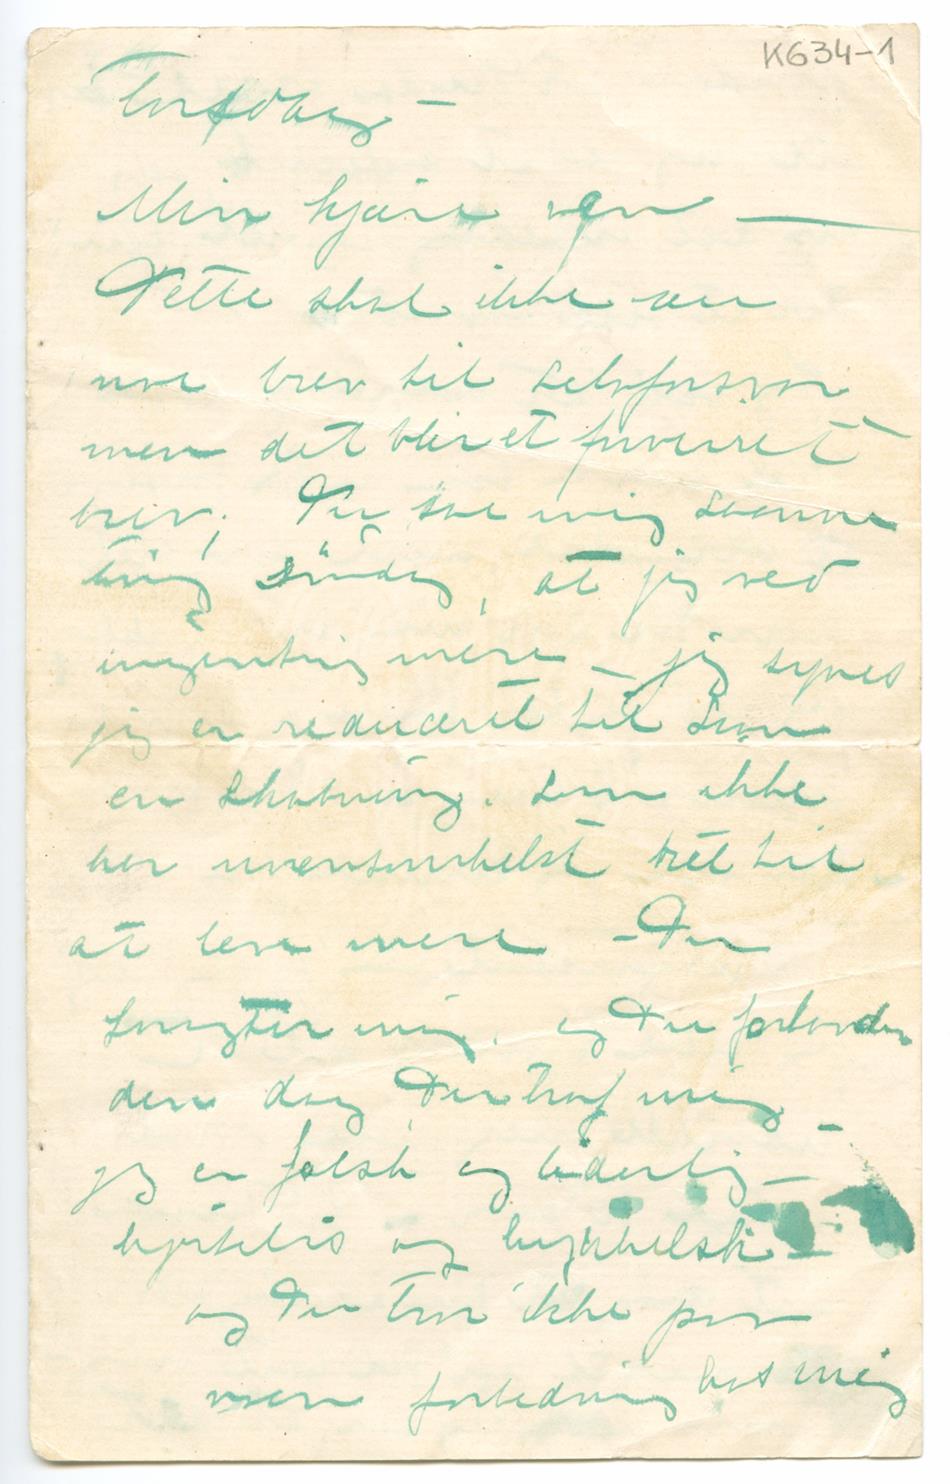 K634-1
Torsdag –
Min kjære ven —
Dette skal ikke være
noe brev til selvforsvar
men det blir et forvirret
brev; Du sae mig saamange
ting søndag, at jeg ved
ingenting mere – jeg synes
jeg er reduceret til som
en skabning. som ikke
har noensomhelst ret til
at leve mere – Du
foragter mig. og Du forbander
den dag Du traf mig –
jeg er falsk og liderlig –
hjerteløs og hyklersk –
og Du tror ikke paa
noen forbedring hos mig